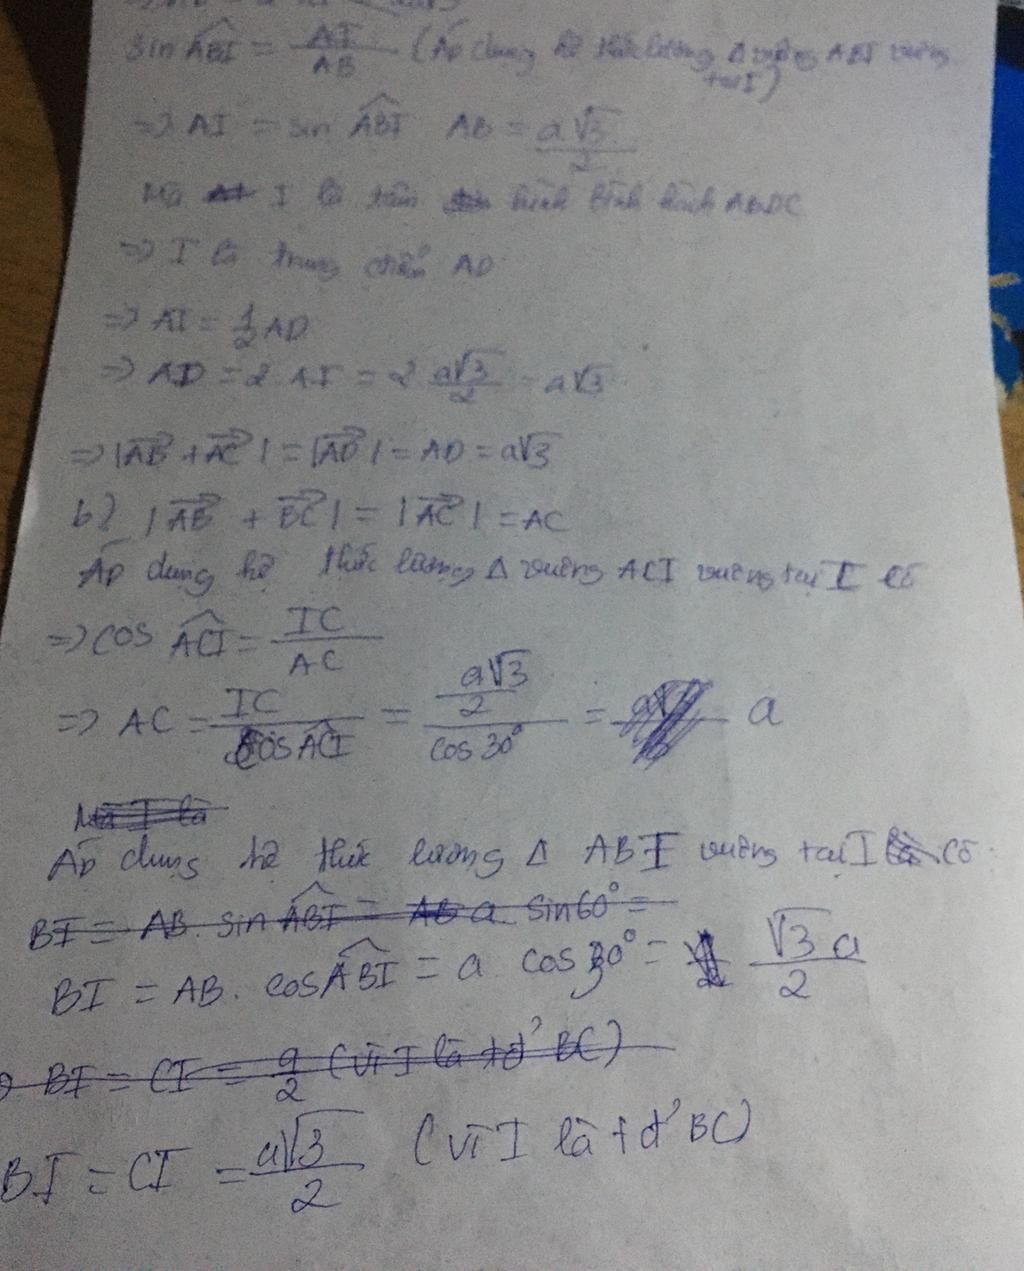 sin ABI = AI / AB (Áp dụng hệ thức lượng Δ vuông ABI vuông
tại I)
=> AI = sin ABI AB = a√3 / 2
Mà I là tâm hình bình hành ABDC
=> I là trung điểm AD
=> AI = 1/2 AD
=> AD = 2 AI = 2 a√3/2 = a√3
=> |AB + AC| = |AD| = AD = a√3
b) |AB + BC| = |AC| = AC
Áp dụng hệ thức lượng Δ vuông ACI vuông tại I có
=> cos ACI = IC / AC
=> AC = IC / cos ACI = a√3/2 / cos 30° = a
Mà I là
Áp dụng hệ thức lượng Δ ABI vuông tại I có
BI = AB. sin ABI = AB a sin60° =
BI = AB. cos ABI = a cos 30° = √3 a / 2
BI = CI = a/2 (vì I là tđ' BC)
BI = CI = a√3 / 2 (vì I là tđ' BC)